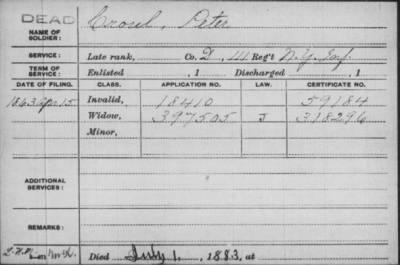 DEAD
NAME OF SOLDIER: Crosel, Peter
SERVICE: Late rank, Co. D, 111 Reg't N.Y. Inf.
TERM OF SERVICE: Enlisted , 1 Discharged , 1
DATE OF FILING. CLASS. APPLICATION NO. LAW. CERTIFICATE NO.
1863 Apr. 15 Invalid, 18410 59184
Widow, 397505 J 318296
Minor,
ADDITIONAL SERVICES:
REMARKS:
Died July 1, 1883, at